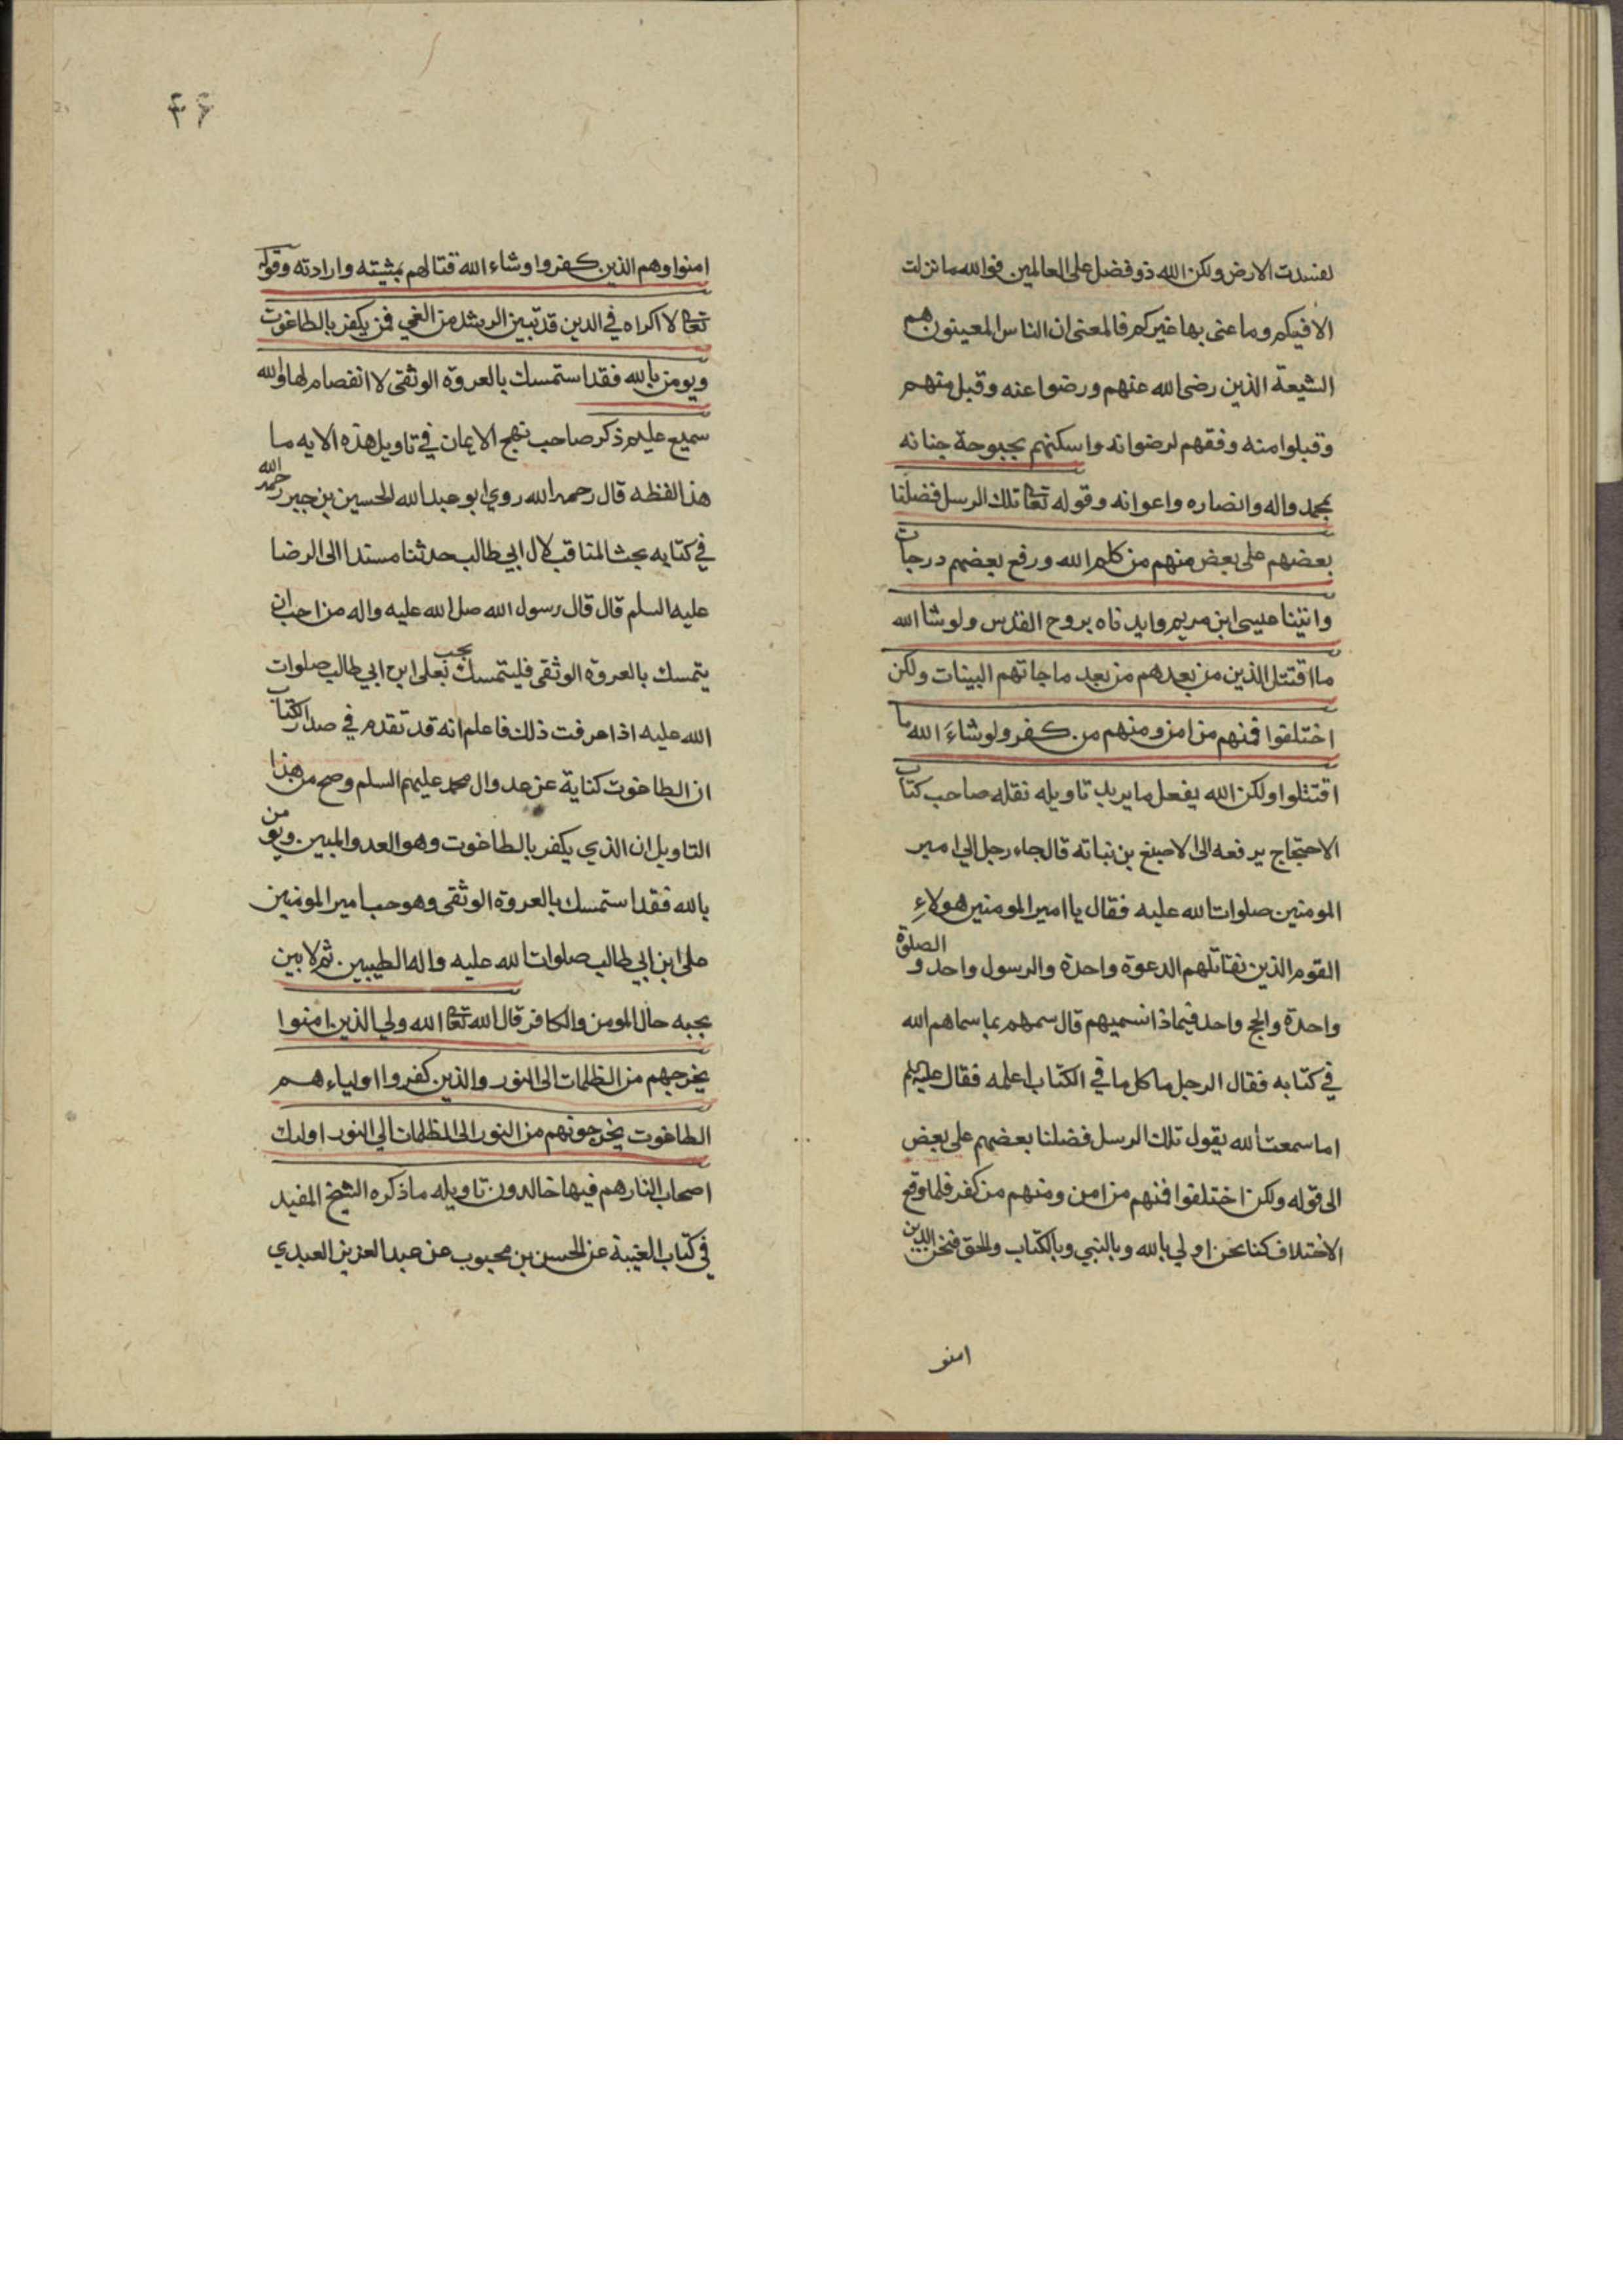 لفسدت الارض ولكن الله ذو فضل على العالمين فوالله ما نزلت
الا فيكم وما عنى بها غيركم فالمعنى ان الناس المعينون هم
الشيعة الذين رضى الله عنهم ورضوا عنه وقبل منهم
وقبلوا منه وفقهم لرضوانه واسكنهم بحبوحة جنانه
بمحمد واله وانصاره واعوانه وقوله تعا تلك الرسل فضلنا
بعضهم على بعض منهم من كلم الله ورفع بعضهم درجات
واتينا عيسى ابن مريم وايدناه بروح القدس ولو شا الله
ما اقتتل الذين من بعدهم من بعد ما جاتهم البينات ولكن
اختلفوا فمنهم من امن ومنهم من كفر ولو شاء الله ما
اقتتلوا ولكن الله يفعل ما يريد تاويله نقله صاحب كتاب
الاحتجاج يرفعه الى الاصبغ بن نباته قال جاء رجل الي امير
المومنين صلوات الله عليه فقال يا امير المومنين هولاء
القوم الذين نقاتلهم الدعوة واحدة والرسول واحد و الصلوة
واحدة والحج واحد فيماذا نسميهم قال سمهم بما سماهم الله
في كتابه فقال الرجل ما كل ما في الكتاب اعلمه فقال عليه السلم
اما سمعت الله يقول تلك الرسل فضلنا بعضهم على بعض
الى قوله ولكن اختلفوا فمنهم من امن ومنهم من كفر فلما وقع
الاختلاف كنا نحن اولي بالله وبالنبي وبالكتاب والحق فنحن الذين
امنو
۴۶
امنوا وهم الذين كفروا وشاء الله قتالهم بمشيته وارادته وقوله
تعا لا اكراه في الدين قد تبين الرشد من الغي فمن يكفر بالطاغوت
ويومن بالله فقد استمسك بالعروة الوثقى لا انفصام لها والله
سميع عليم ذكر صاحب نهج الايمان في تاويل هذه الايه ما
هذا لفظه قال رحمه الله روي ابو عبد الله الحسين بن جبير رحمه الله
في كتابه بحث المناقب لال ابي طالب حدثنا مسندا الى الرضا
عليه السلم قال قال رسول الله صلى الله عليه واله من احب ان
يتمسك بالعروة الوثقى فليتمسك بحب على ابن ابي طالب صلوات
الله عليه اذا عرفت ذلك فاعلم انه قد تقدم في صدر الكتاب
ان الطاغوت كناية عن عدو ال محمد عليهم السلم وصح من هذا
التاويل ان الذي يكفر بالطاغوت وهو العدو المبين ويومن
بالله فقد استمسك بالعروة الوثقى وهو حب امير المومنين
على ابن ابي طالب صلوات الله عليه واله الطيبين ثم لا بين
بحبه حال المومن والكافر قال الله تعا الله ولي الذين امنوا
يخرجهم من الظلمات الى النور والذين كفروا اولياءهم
الطاغوت يخرجونهم من النور الى الظلمات الي النور اولىك
اصحاب النار هم فيها خالدون تاويله ما ذكره الشيخ المفيد
في كتاب الغيبة عن الحسن بن محبوب عن عبد العزيز العبدي